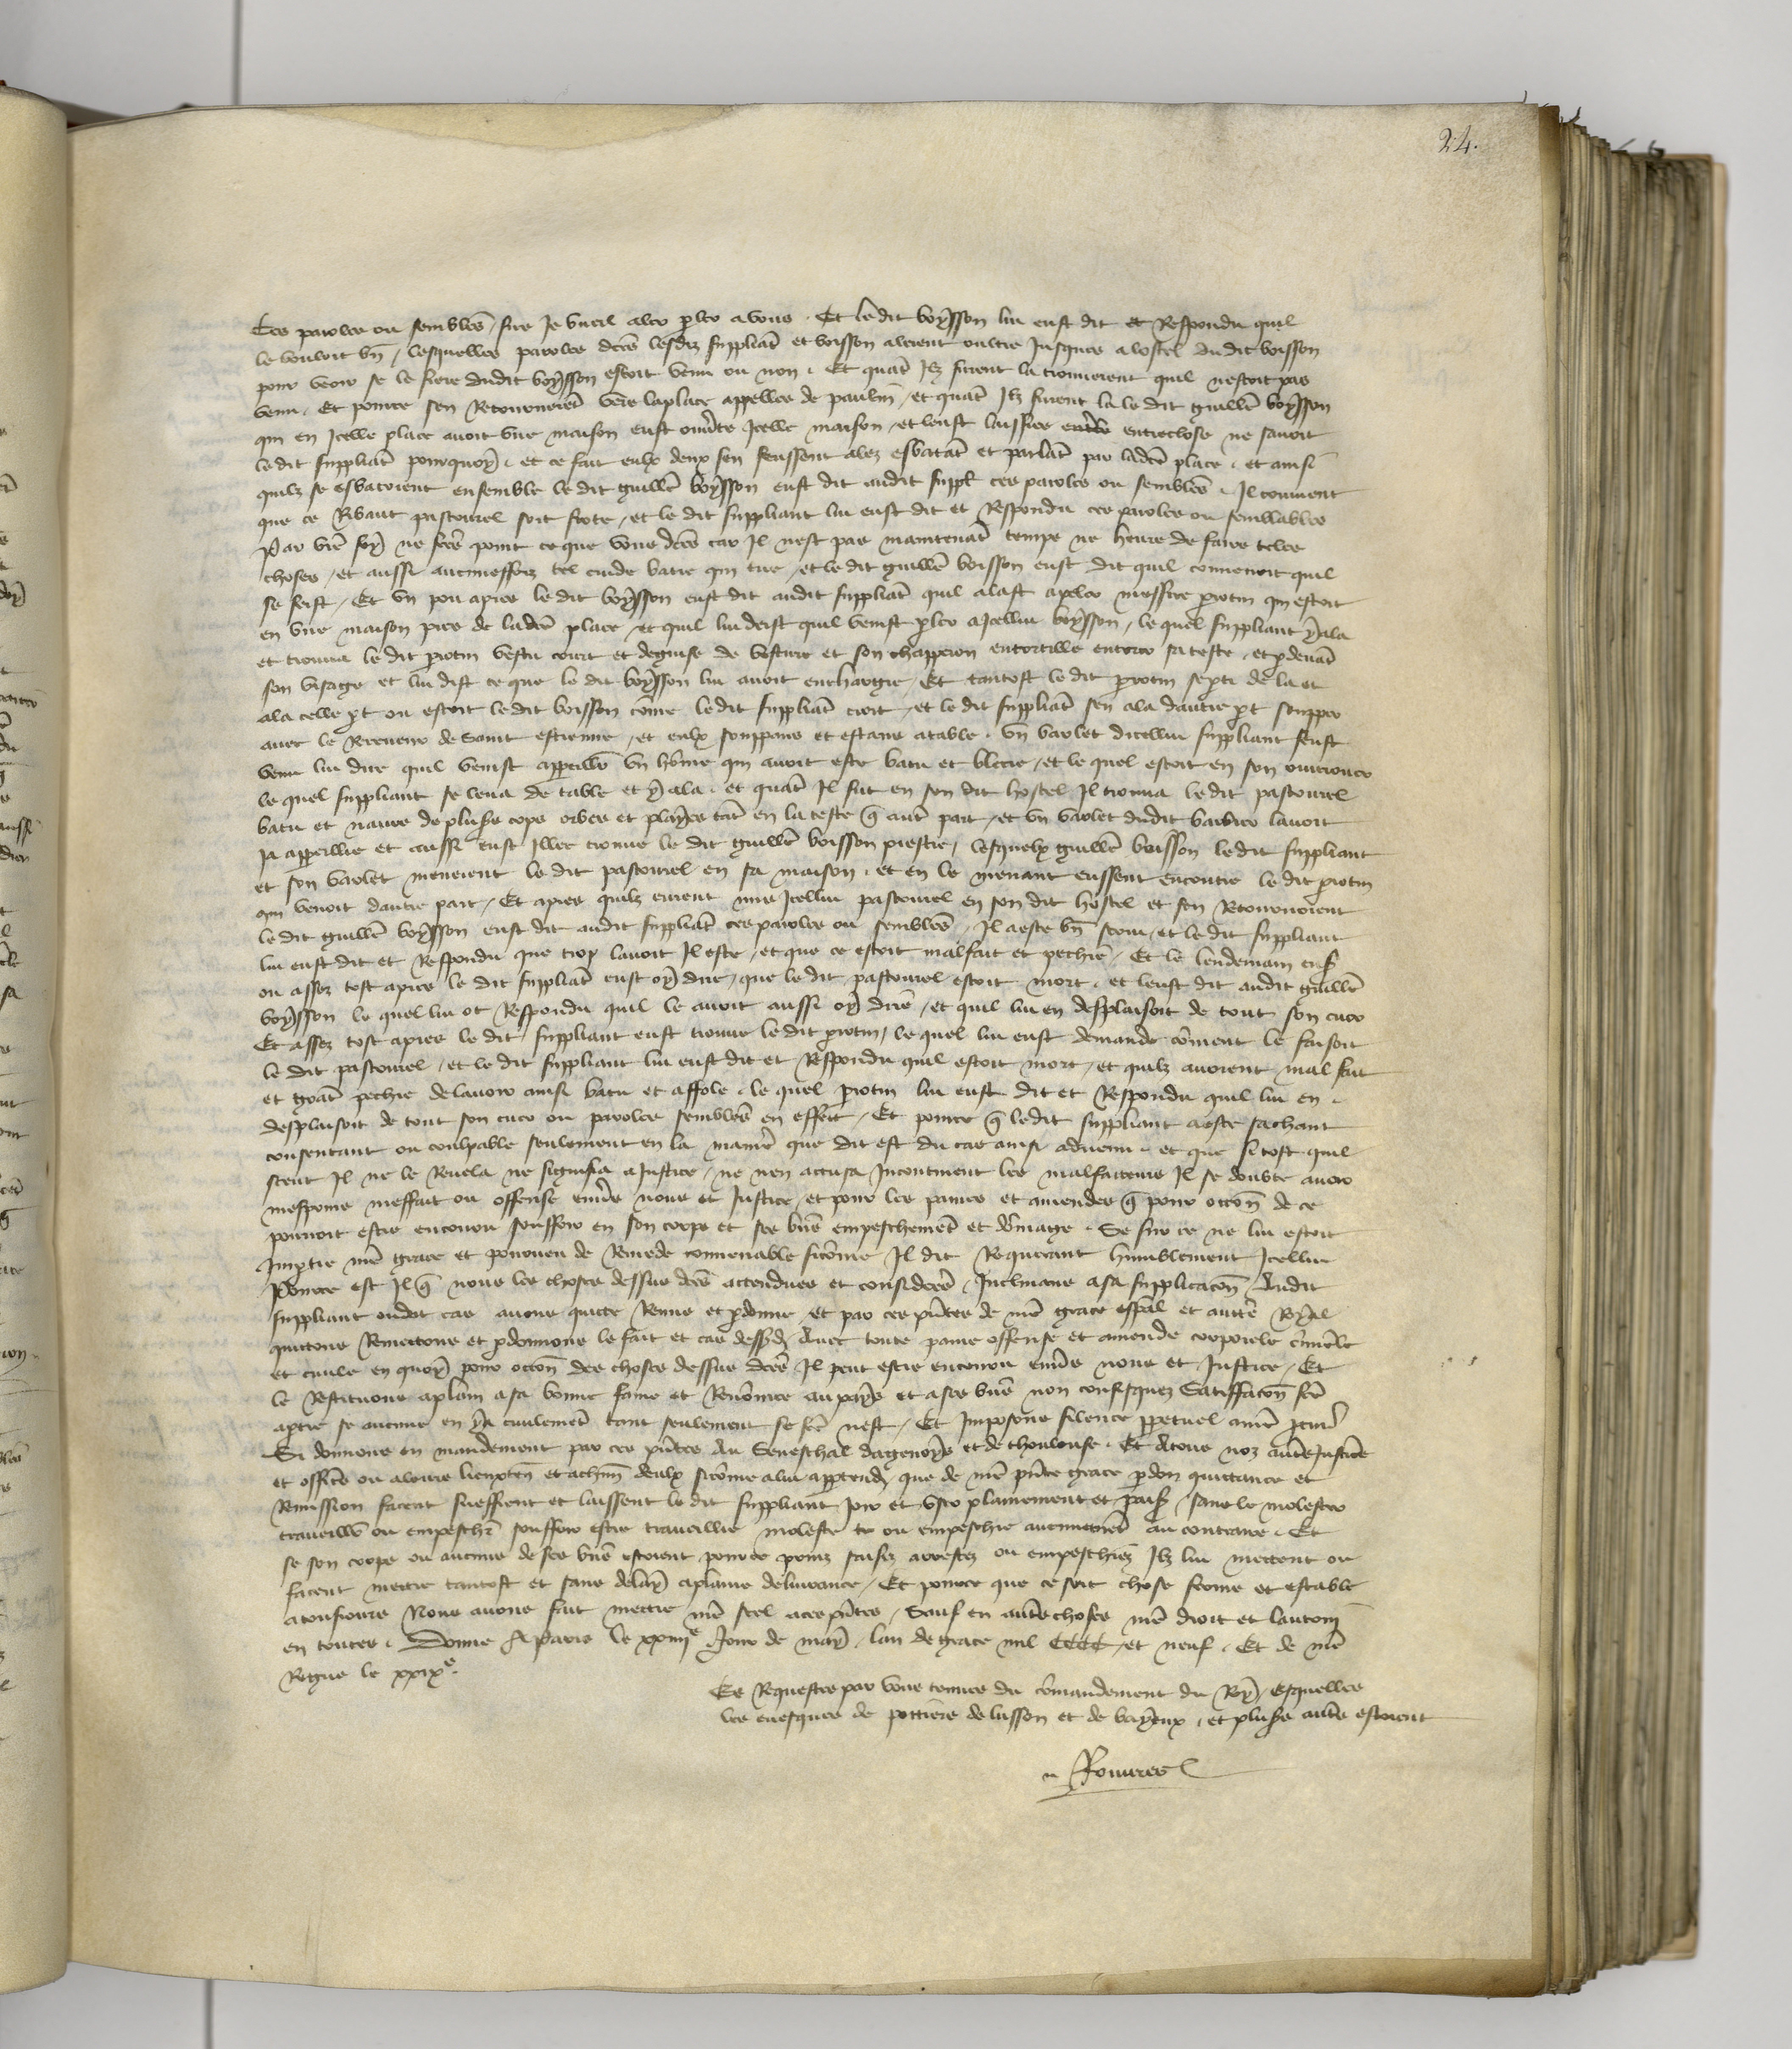 24.
Ces paroles ou semblēs, sire Je vueil aler p̄ler a vous. Et le dit boỹsson lui eust dit et Respondu quil
le vouloit bn̄, lesquelles paroles dcēs lesdiz suppliāt et boisson alerent oultre Jusques a lostel du dit boisson
pour veoir se le frere dudit boỹsson estoit venu ou non. Et quāt Ilz furent la trouuerent quil nestoit pas
venu. Et pource sen Retournerēt vers la place appellee de paulin, et quāt Ilz furent la le dit guillē boỹsson
qui en Icelle place auoit vne maison eust ouverte Icelle maison et leust laissiee entreclose ne sauoit
ledit suppliāt pourquoỹ. et ce fait eulx deux sen feussent alez esbatāt et parlāt par ladcē place. et ainsi
quilz se esbatoient ensemble le dit guillē boỹsson eust dit audit suppl̄ ces paroles ou semblēs. Il conuient
que ce Ribaut pastourel soit frote, et le dit suppliant lui eust dit et Respondu ces paroles ou semblables
Par vr̄e foỹ ne fcēs point ce que vous dcēs car Il nest pas maintenāt temps ne heure de faire teles
choses, et aussi aucuneffoiz tel cuide batre qui tue, et le dit guillē boisson eust dit quil conuenoit quil
se feist, Et vn pou apres le dit boỹsson eust dit audit suppliāt quil alast apeler messire protin qui estoit
en vne maison pres de ladcē place, et quil lui deist quil venist p̄ler a Icellui boỹsson, le quel suppliant ỹ ala
et trouua le dit protin vestu court et deguise de vesture et son chapperon entortille entour sa teste, et p̄ deuāt
son visage et lui dist ce que le dit boỹsson lui auoit enchargie, Et tantost le dit protin se p̄ti de la et
ala celle p̄t ou estoit le dit boisson cōme ledit suppliāt croit, et le dit suppliāt sen ala dautre p̄t soupper
auec le Receueur de Saint estienne, et eulx souppans et estans a table. vn varlet dicellui suppliant feust
venu lui dire quil venist appeillr̄ vn hōme qui auoit este batu et blecie, et le quel estoit en son ouurouer
le quel suppliant se leua de table et ỹ ala. et quāt Il fut en son dit hostel Il trouua le dit pastourel
batu et naure de pluss̄ cops orbes et plaỹes tāt en la teste q̄ autr̄ part, et vn varlet dudit barbier lauoit
Ja appeillie et aussi eust Illec trouue le dit guillē boisson prestre, lesquelx guillē boisson ledit suppliant
et son varlet menerent le dit pastourel en sa maison. et en le menant eussent encontre le dit protin
qui venoit dautre part, Et apres quilz eurent mis Icellui pastourel en son dit hostel et sen Retournoient
le dit guillē boỹsson eust dit audit suppliāt ces paroles ou semblēs, Il a este bn̄ frotu, et le dit suppliant
lui eust dit et Respondu que trop lauoit Il este, et que ce estoit malfait et pechie, Et le lendemain ens̄
ou assez tost apres le dit suppliāt eust oỹ dire, que le dit pastourel estoit mort. et leust dit audit guillē
boỹsson le quel lui ot Respondu quil le auoit aussi oỹ dire, et quil lui en desplaisoit de tout son cuer
Et assez tost apres le dit suppliant eust trouue ledit protin, le quel lui eust demande cōment le faisoit
le dit pastourel, et le dit suppliant lui eust dit et Respondu quil estoit mort, et quilz auoient mal fait
et grāt pechie de lauoir ainsi batu et affole. le quel protin lui eust dit et Respondu quil lui en.
desplaisoit de tout son cuer ou paroles semblēs en effect, Et pource q̄ ledit suppliant a este sachant
consentant ou coulpable seulement en la manier̄ que dit est du cas ainsi aduenu. et que si tost quil
sceut Il ne le Reuela ne signifia a Justice, ne nen accusa Incontinent les malfaiteurs Il se doubte auoir
mespoins meffait ou offense enuēs nous et Justice, et pour les paines et amendes q̄ pour occōn de ce
pourroit estre encouru souffrir en son corps et ses biēs empeschemēt et dōmage. Se sur ce ne lui estoit
Imp̄tie nr̄e grace et pourueu de Remede conuenable sicōme Il dit Requerant humblement Icellui
Pource est Il q̄ nous les choses dessus dcēs attendues et considerēs. Inclinans a sa supplicacōn Audit
suppliant oudit cas auons quicte Remis et p̄donne, et par ces pn̄tes de nr̄e grace esp̄al et auctē Roỹal
quictons Remettons et p̄donnons le fait et cas dessusd̄, Auec toute paine offense et amende corporele crīmēle
et ciuile en quoỹ pour occōn des choses dessus dcēs Il peut estre encouru enuēs nous et Justice, Et
le Restituons a plain a sa bonne fame et Renōmee au paỹs et a ses biēs non confisquez Satisfacōn fcē
a p̄tie se aucune en ỹ a ciuilemēt tant seulement se fcē nest, Et Imposons silence p̄petuel a nr̄e p̄cur̄
Si donnons en mandement par ces pn̄tes Au Seneschal dagenoỹs et de thoulouse. Et A tous noz autr̄s Justicēs
et officēs ou a leurs lieuxten̄ et a chūn deulx sicōme a lui app̄tendr̄, que de nr̄e pn̄te grace p̄don quittance et
Remission facent sueffrent et laissent le dit suppliant Joir et vser plainement et paisb̄, sans le molester
trauaillr̄ ou empeschr̄ souffrir estre trauaillie moleste te ou empeschie aucunemēt au contraire. Et
se son corps ou aucuns de ses biēs estoient pour ce prins saisiz arrestez ou empeschiez Ilz lui mettent ou
facent mettre tantost et sans delaỹ a plaine deliurance, Et pource que ce soit chose ferme et estable
a tousiours Nous auons fait mettre nr̄e seel a ces pn̄tes, Sauf en autr̄s choses nr̄e droit et lautruj
en toutes. Donne A Paris le xxiiijᵉ Jour de maỹ. lan de grace mil CCCC et neuf. Et de nr̄e
Regne le xxixᵉ.
Es Requestes par vous tenues du cōmandement du Roỹ, Esquelles
les euesques de poitiers de lusson et de baỹeux, et pluss̄ autr̄s estoient
Rouures